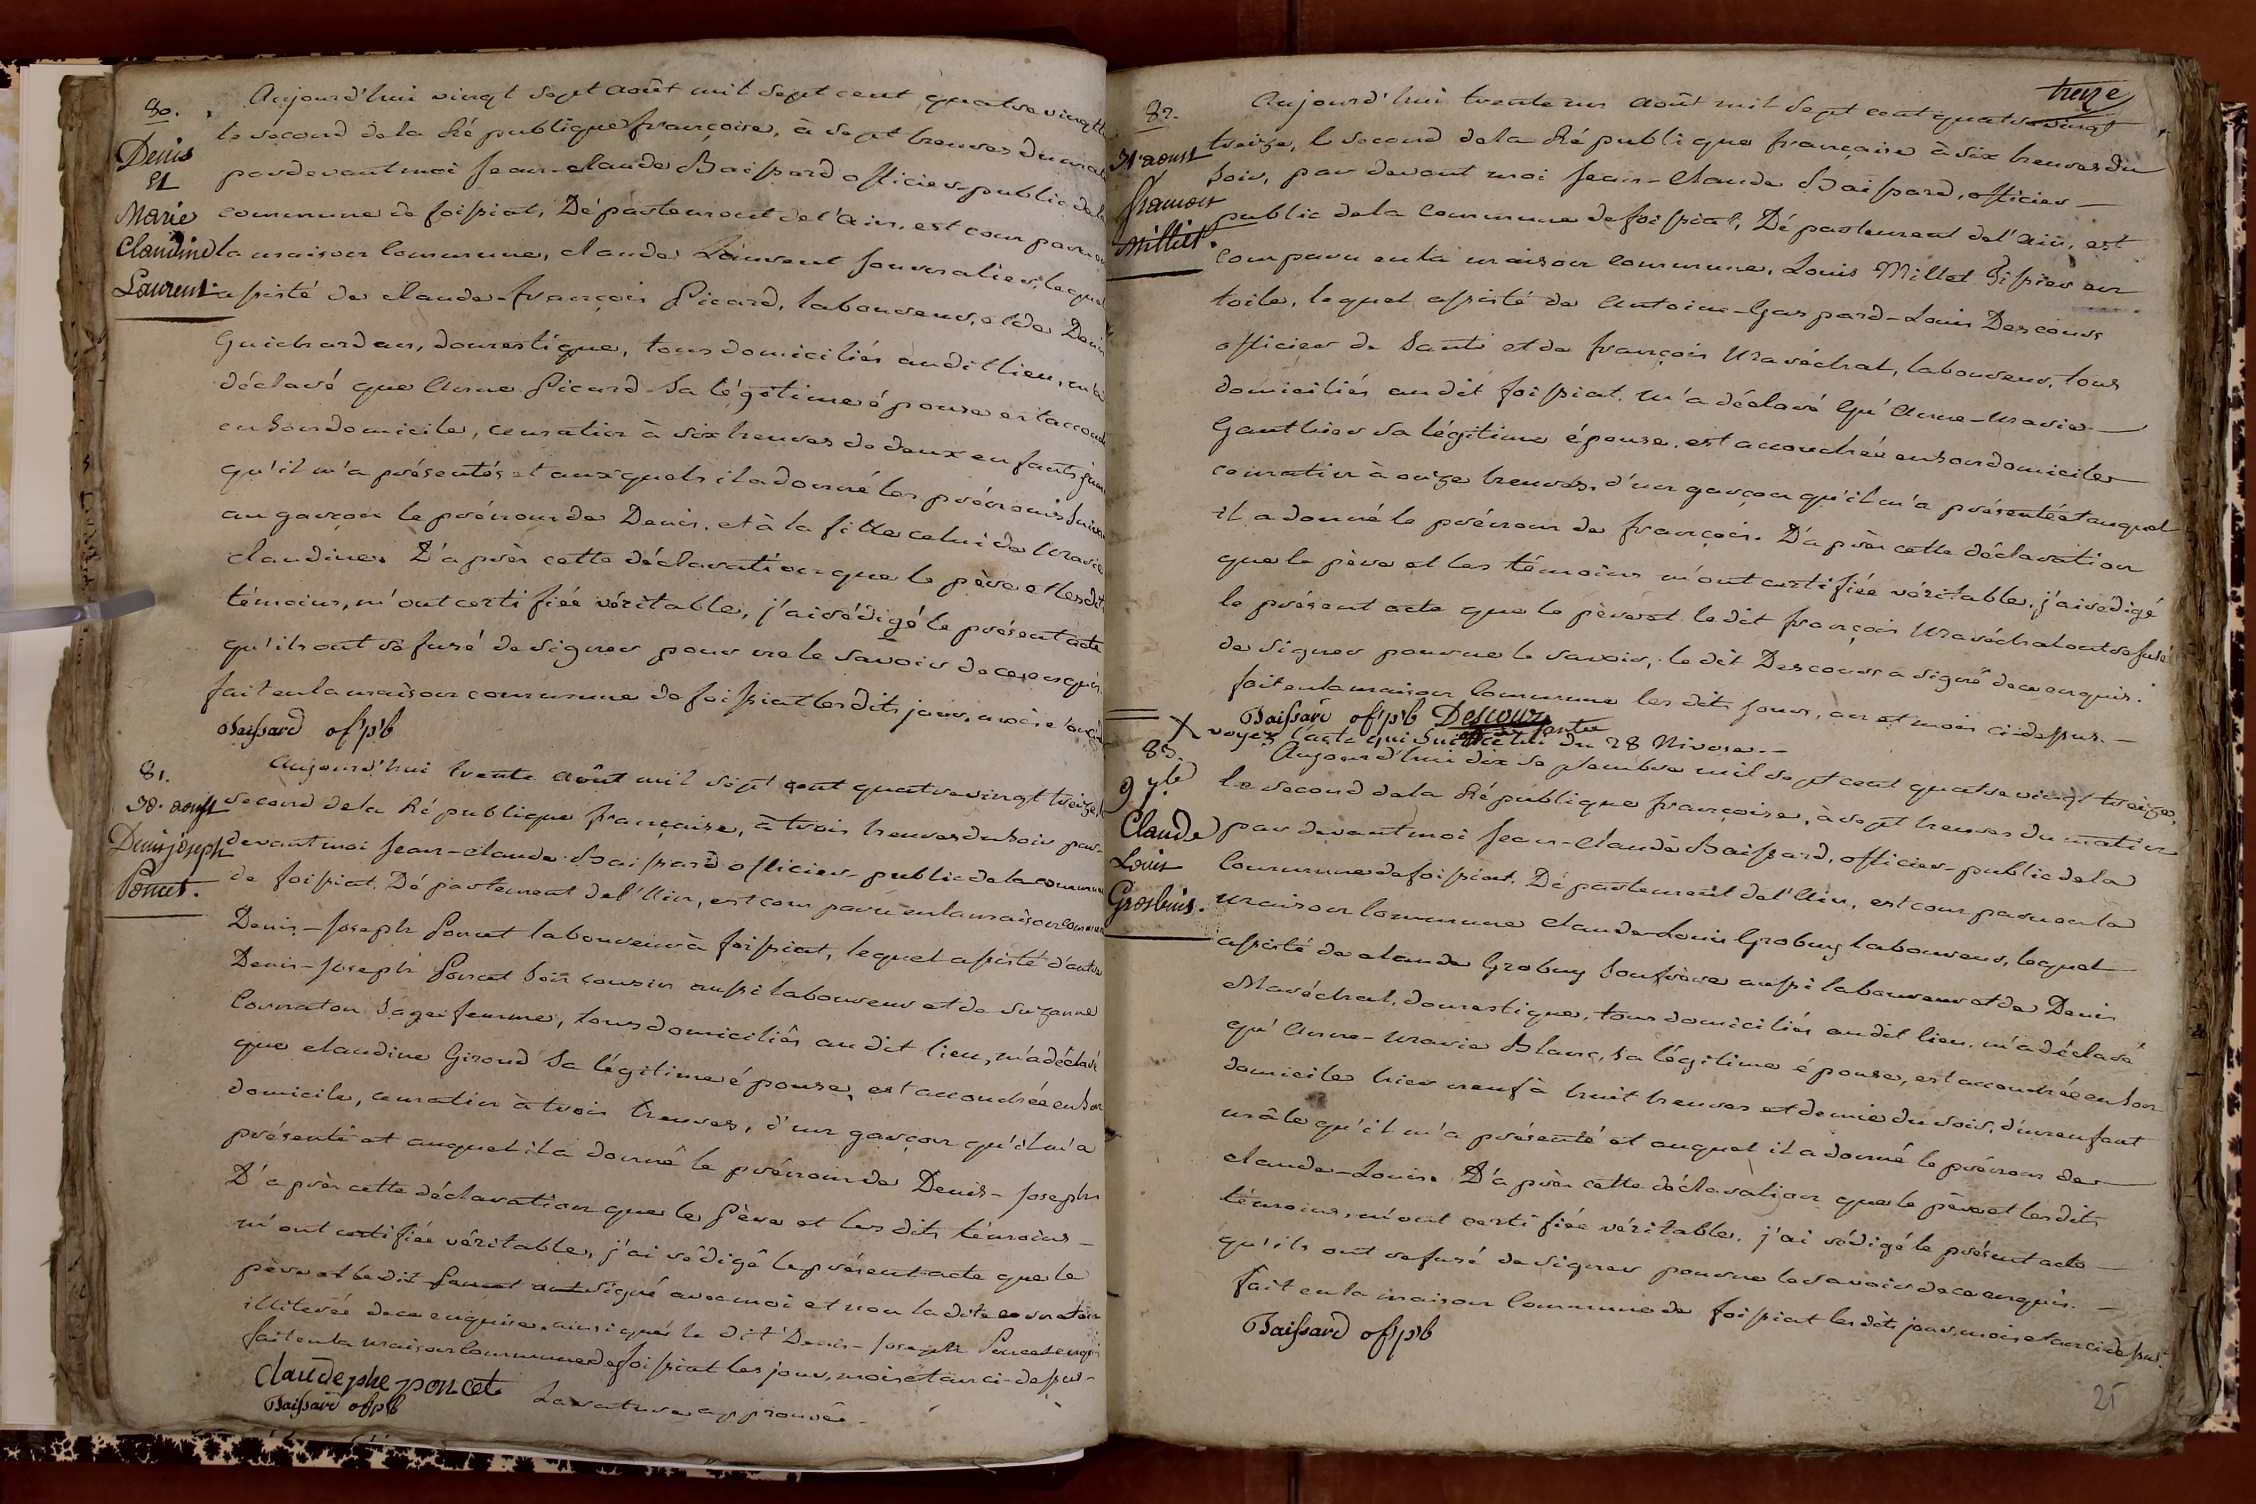 80.
Denis
et
Marie
Claudine
Laurent.
Aujourd'hui vingt sept août mil sept cent quatre vingt
le second de la République françoise, à sept heures du mat
par devant moi Jean-claude Baissard officier public de la
commune de foissiat, Département de l'ain, est comparu en
la maison commune, claude Laurent journalier, lequel
assisté de claude-françois Picard, laboureur, et de Denis
Guichardan, domestique, tous domiciliés audit lieu, m'a
déclaré que Anne Picard sa légitime épouse est accouch
en son domicile, ce matin à six heures de deux enfants
qu'il m'a présentés et auxquels il a donné les prénoms suiv
au garçon le prénom de Denis, et à la fille celui de Marie
claudine. D'après cette déclaration que le père et lesdits
témoins, m'ont certifiée véritable, j'ai rédigé le présent acte
qu'ils ont refusé de signer pour ne le savoir de ce enquis.
fait en la maison commune de foissiat lesdits jour, mois
Baissard of. p'b
81.
30. aoust
Denis joseph
Poncet.
Aujourd'hui trente août mil sept cent quatre vingt treize, le
second de la République française, à trois heures du soir par-
devant moi Jean-claude Baissard officier public de la commune
de foissiat, Département de l'Ain, est comparu en la maison commune
Denis-Joseph Poncet laboureur à foissiat, lequel assisté d'autre
Denis-Joseph Poncet son cousin aussi laboureur et de Suzanne
Cornaton sage femme, tous domiciliés audit lieu, m'a déclaré
que claudine Giroud sa légitime épouse, est accouchée en son
domicile, ce matin à trois heures, d'un garçon qu'il m'a
présenté et auquel il a donné le prénom de Denis-Joseph
D'après cette déclaration que le Père et lesdits témoins-
m'ont certifiée véritable, j'ai rédigé le présent acte que le
père et ledit Poncet ont signé avec moi et non la dite cornaton
illiterée de ce enquise. ainsi que le dit Denis-Joseph Poncet enquis
fait en la maison commune de foissiat les jour, mois et an ci-dessus-
Claude phe poncet
Baissard of. p'b
La rature approuvée-
treize
82.
31. aoust
françois
Millet.
Aujourd'hui trente un août mil sept cent quatre vingt
treize, le second de la République française à six heures du
soir, par devant moi Jean-Claude Baissard, officier-
public de la Commune de foissiat, Département de l'ain, est
comparu en la maison commune, Louis Millet Tissier en
toile, lequel assisté de Antoine-Gaspard-Louis Descours
officier de santé et de françois Maréchal, laboureur, tous
domiciliés audit foissiat, m'a déclaré qu'Anne-Marie-
Gauthier sa légitime épouse, est accouchée en son domicile
ce matin à onze heures, d'un garçon qu'il m'a présenté et auquel
il a donné le prénom de françois. D'après cette déclaration
que le père et les témoins m'ont certifiée véritable, j'ai rédigé
le présent acte que le père et ledit françois Maréchal ont refusé
de signer pour ne le savoir, ledit Descours a signé de ce enquis.
fait en la maison Commune les dits jour, an et mois ci-dessus.-
Baissard of. p'b Descours
X voyez l'acte qui suit celui du 28 Nivose--
83.
9 7.bre
Claude
Louis
Grosbuis.
Aujourd'hui dix septembre mil sept cent quatre vingt treize,
le second de la République françoise, à sept heures du matin
par devant moi Jean-Claude Baissard, officier-public de la
Commune de foissiat, Département de l'Ain, est comparu en la
maison Commune claude-Louis Grobuy laboureur, lequel
assisté de claude Grobuy son frère aussi laboureur et de Denis
Maréchal, domestique, tous domiciliés audit lieu, m'a déclaré
qu'Anne-Marie Blanc, sa légitime épouse, est accouchée en son
domicile hier neuf à huit heures et demie du soir, d'un enfant
mâle qu'il m'a présenté et auquel il a donné le prénom de-
claude-Louis. D'après cette déclaration que le père et lesdits
témoins, m'ont certifiée véritable, j'ai rédigé le présent acte-
qu'ils ont refusé de signer pour ne le savoir de ce enquis.-
fait en la maison Commune de foissiat les dits jour, mois et an ci dessus.
Baissard of. p'b
25